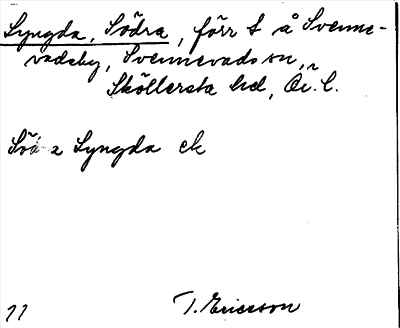 Lyngda, Södra, förr t å Svenne-
vadsby, Svennevads sn,
Sköllersta hd, Ör. l.
Söd a Lyngda ek
11 T. Ericsson